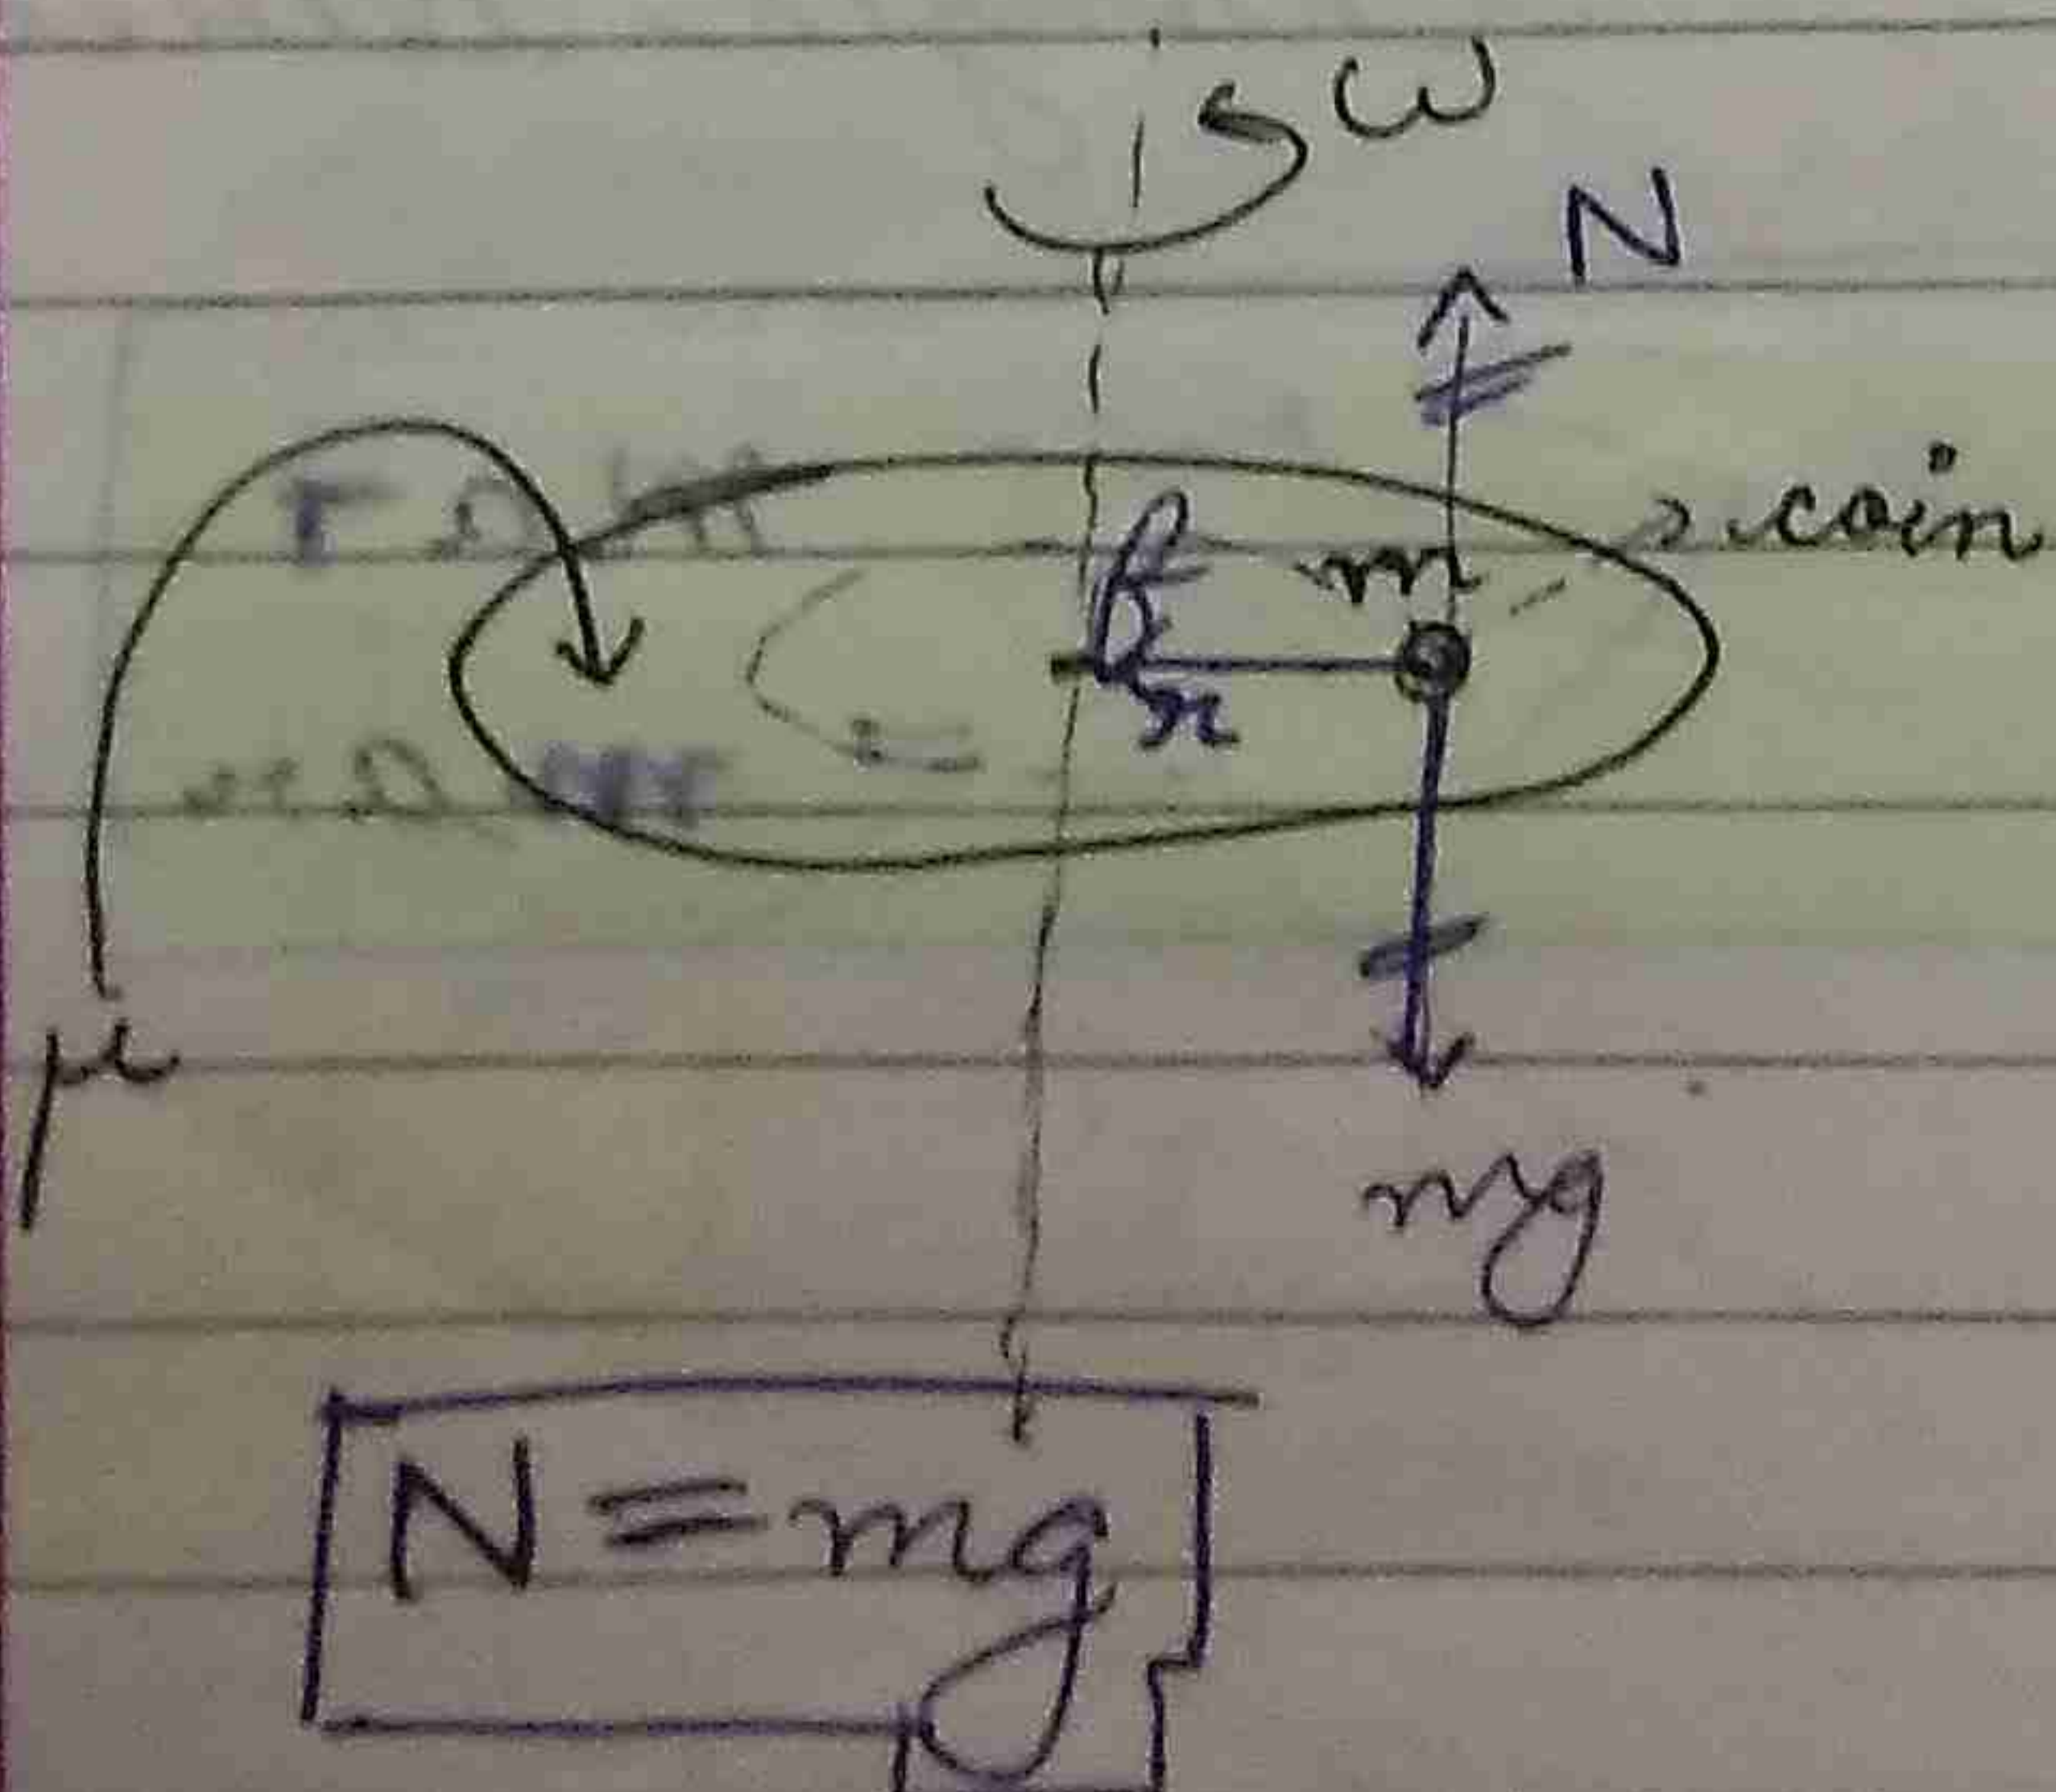 ω
N
coin
m
f
r
μ
mg
N = mg